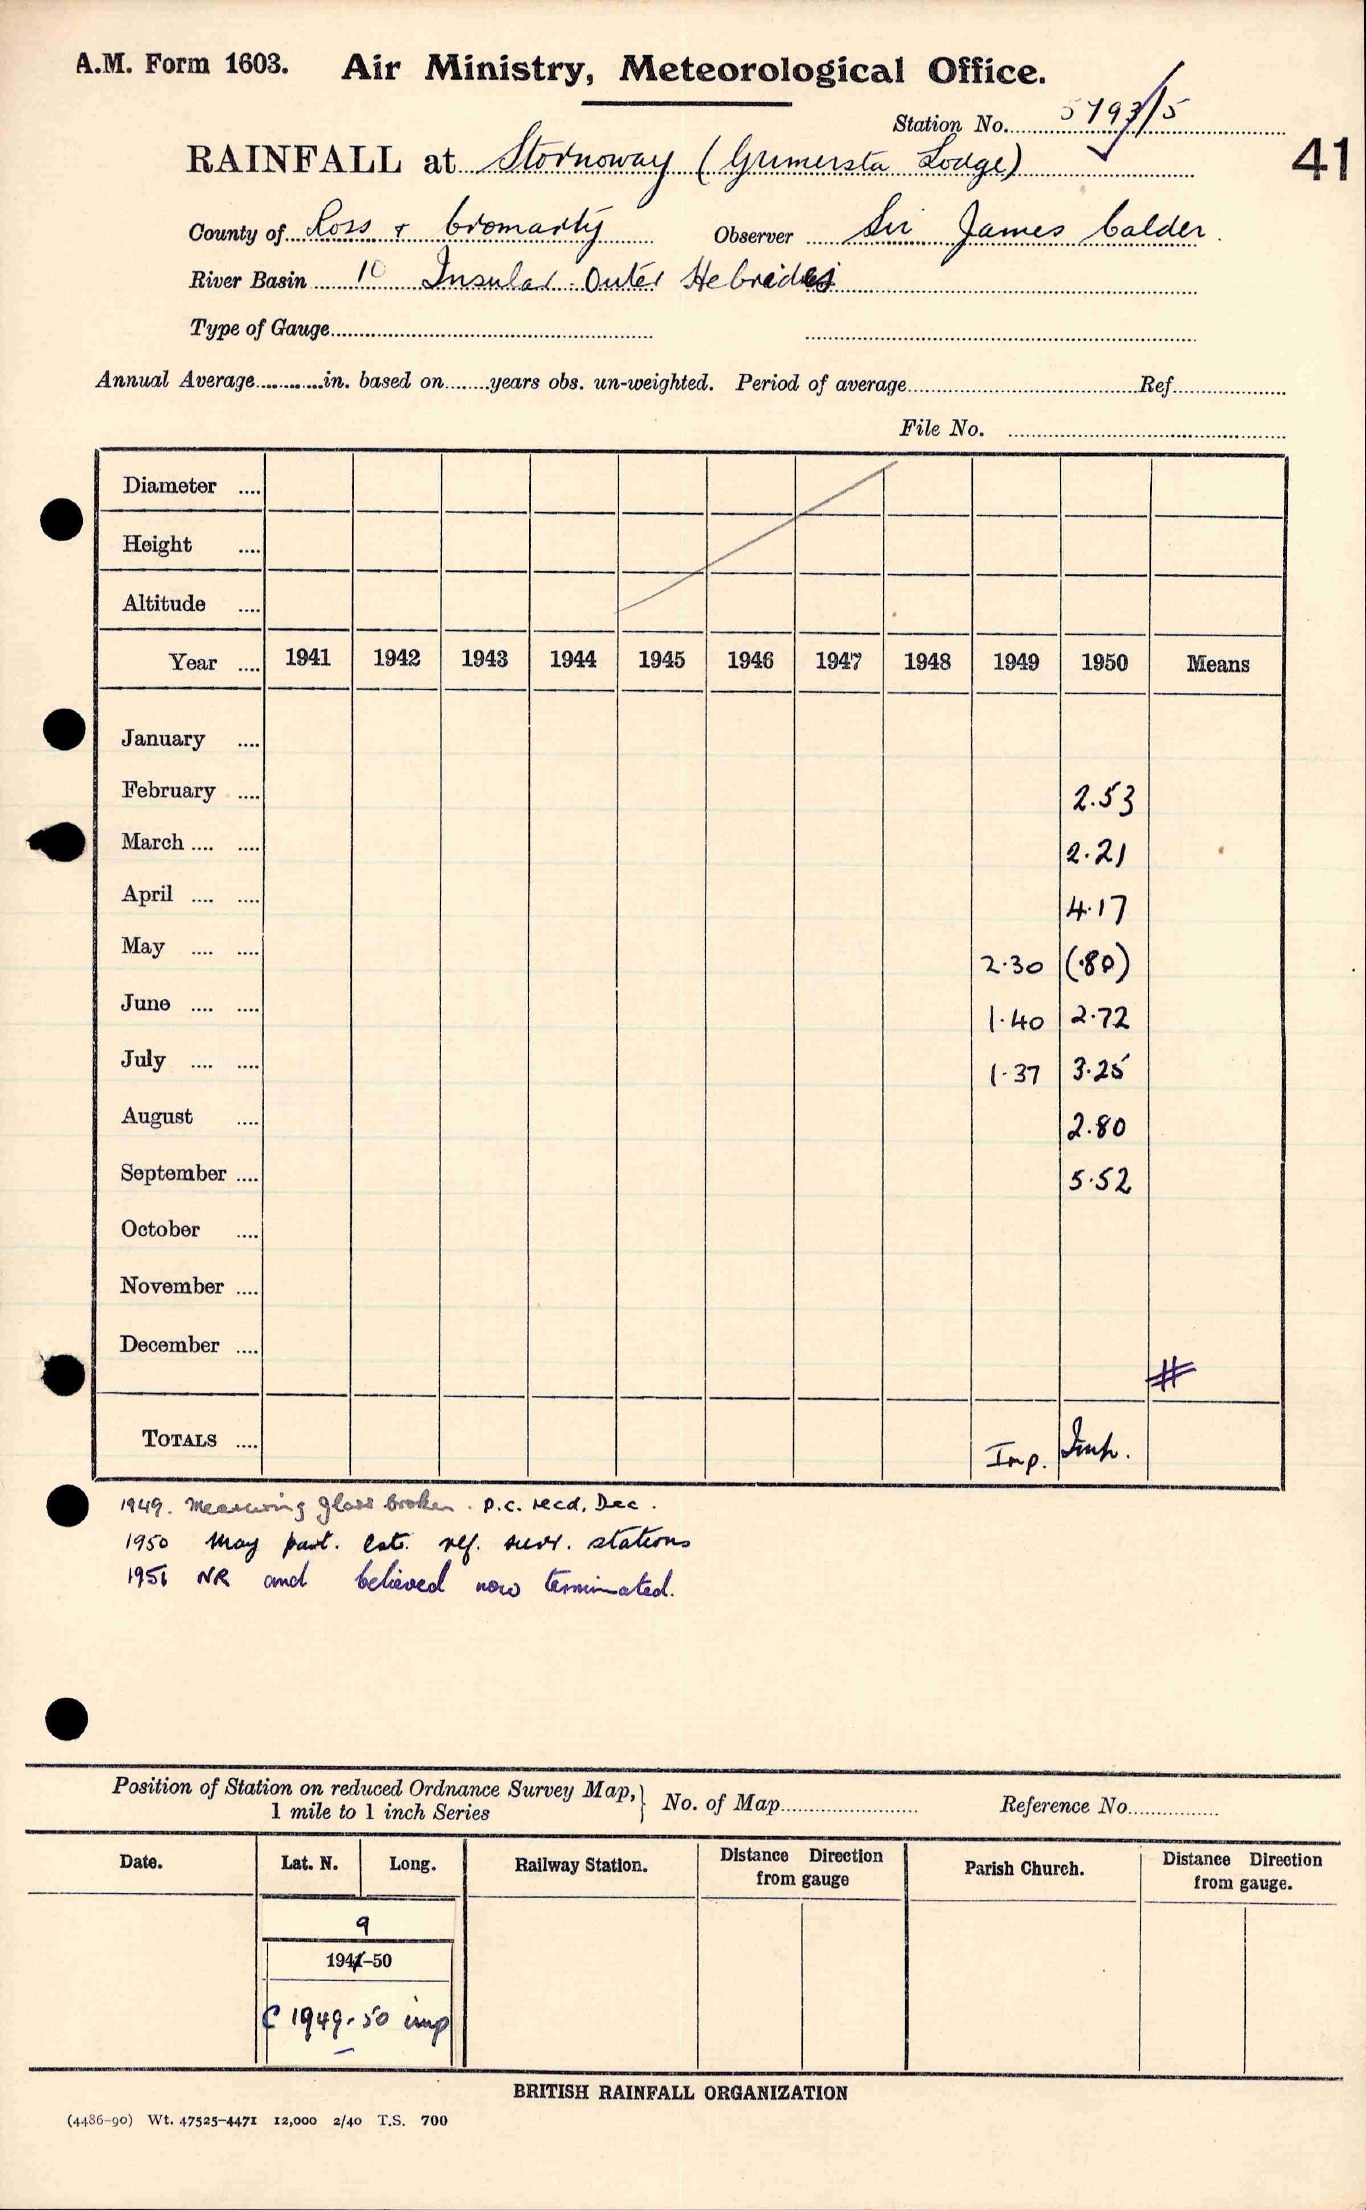 A.M. Form 1603. Air Ministry, Meteorological Office.
Station No. 5793/5
RAINFALL at Stornoway (Grimersta Lodge)
41
County of Ross & Cromarty Observer Sir James Calder.
River Basin 10 Insular Outer Hebrides
Type of Gauge
Annual Average in. based on years obs. un-weighted. Period of average Ref.
File No.
Diameter
Height
Altitude
Year 1941 1942 1943 1944 1945 1946 1947 1948 1949 1950 Means
January
February 2.53
March 2.21
April 4.17
May 2.30 (.80)
June 1.40 2.72
July 1.37 3.25
August 2.80
September 5.52
October
November
December
#
TOTALS Imp. Imp.
1949. Measuring glass broken. p.c. recd. Dec.
1950 May part. est. ref. surr. stations
1951 NR and believed now terminated.
Position of Station on reduced Ordnance Survey Map, } No. of Map Reference No.
1 mile to 1 inch Series
Date. Lat. N. Long. Railway Station. Distance Direction from gauge Parish Church. Distance Direction from gauge.
9
1941-50
C 1949-50 imp
BRITISH RAINFALL ORGANIZATION
(4486-90) Wt. 47525-4471 12,000 2/40 T.S. 700